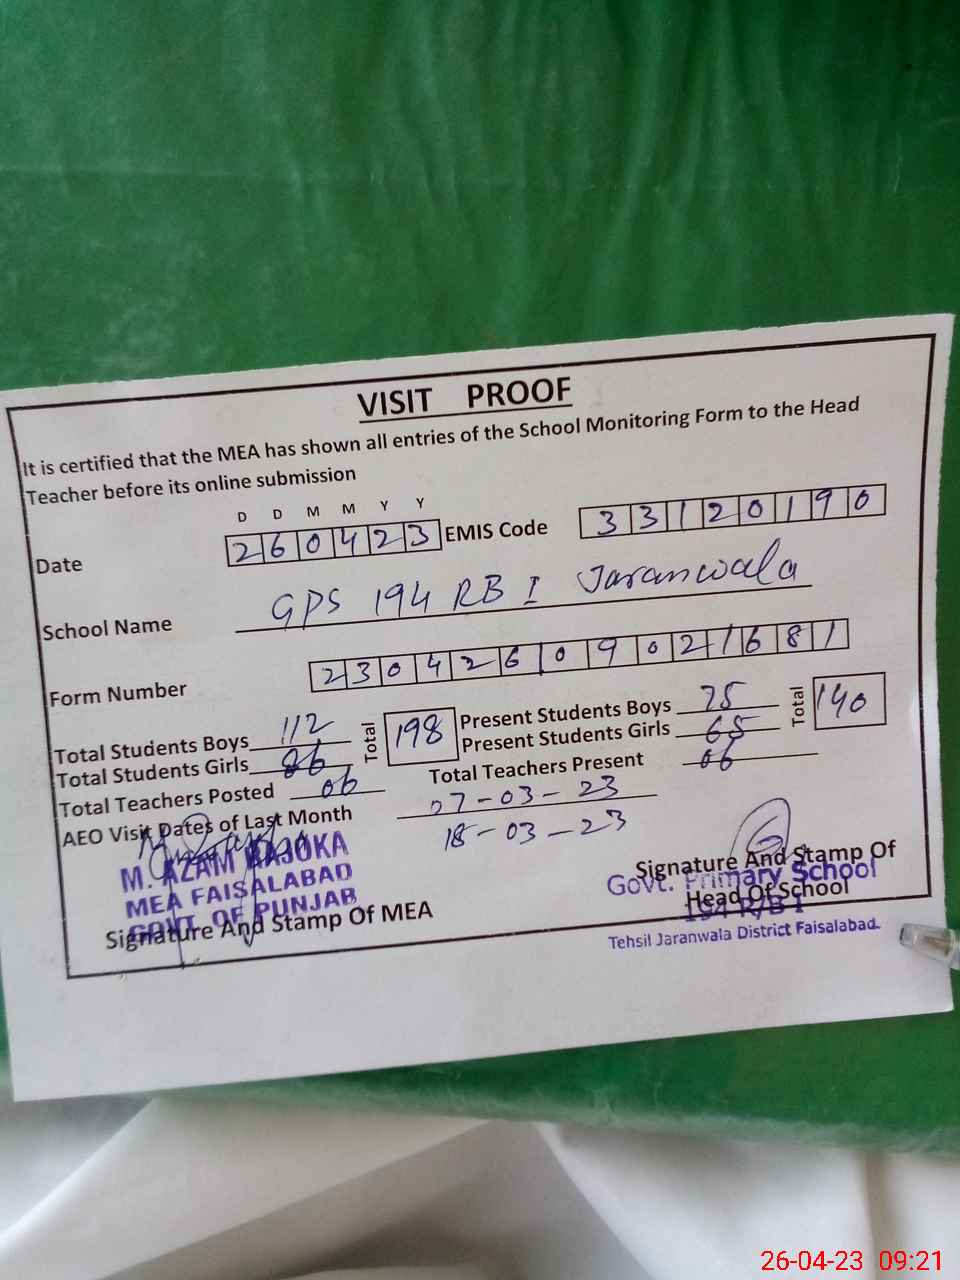 VISIT PROOF
It is certified that the MEA has shown all entries of the School Monitoring Form to the Head
Teacher before its online submission
D D M M Y Y
Date 260423 EMIS Code 33120190
School Name GPS 194 RB I Jaranwala
Form Number 23042609021681
Total Students Boys 112 Total 198 Present Students Boys 75 Total 140
Total Students Girls 86 Present Students Girls 65
Total Teachers Posted 06 Total Teachers Present 06
AEO Visit Dates of Last Month 07-03-23
18-03-23
M. AZAM BAJOKA
MEA FAISALABAD
GOVT. OF PUNJAB
Signature And Stamp Of MEA
Signature And Stamp Of
Head Of School
Govt. Primary School
194 R/B I
Tehsil Jaranwala District Faisalabad
26-04-23 09:21